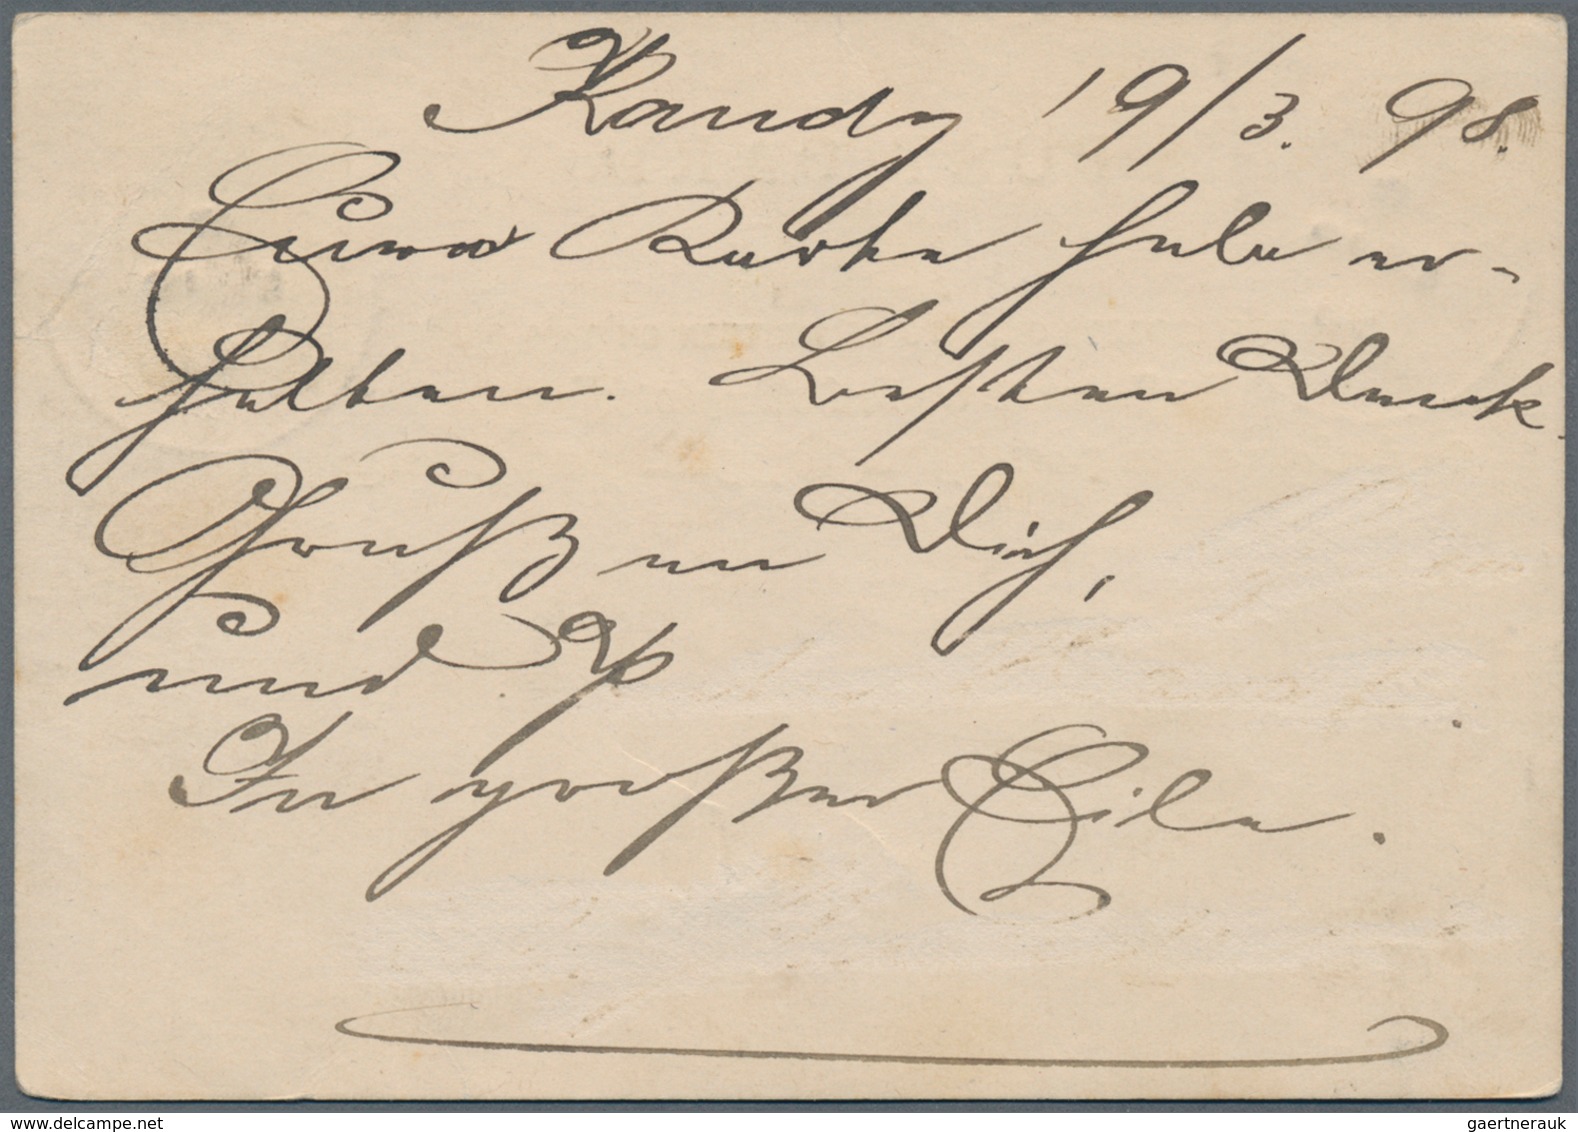 Kandy 19/3. 98.
Eure Karte habe er-
halten. Besten Dank.
Gruß an Dich,
und
In großer Eile.
www.delcampe.net
gaertnerauk